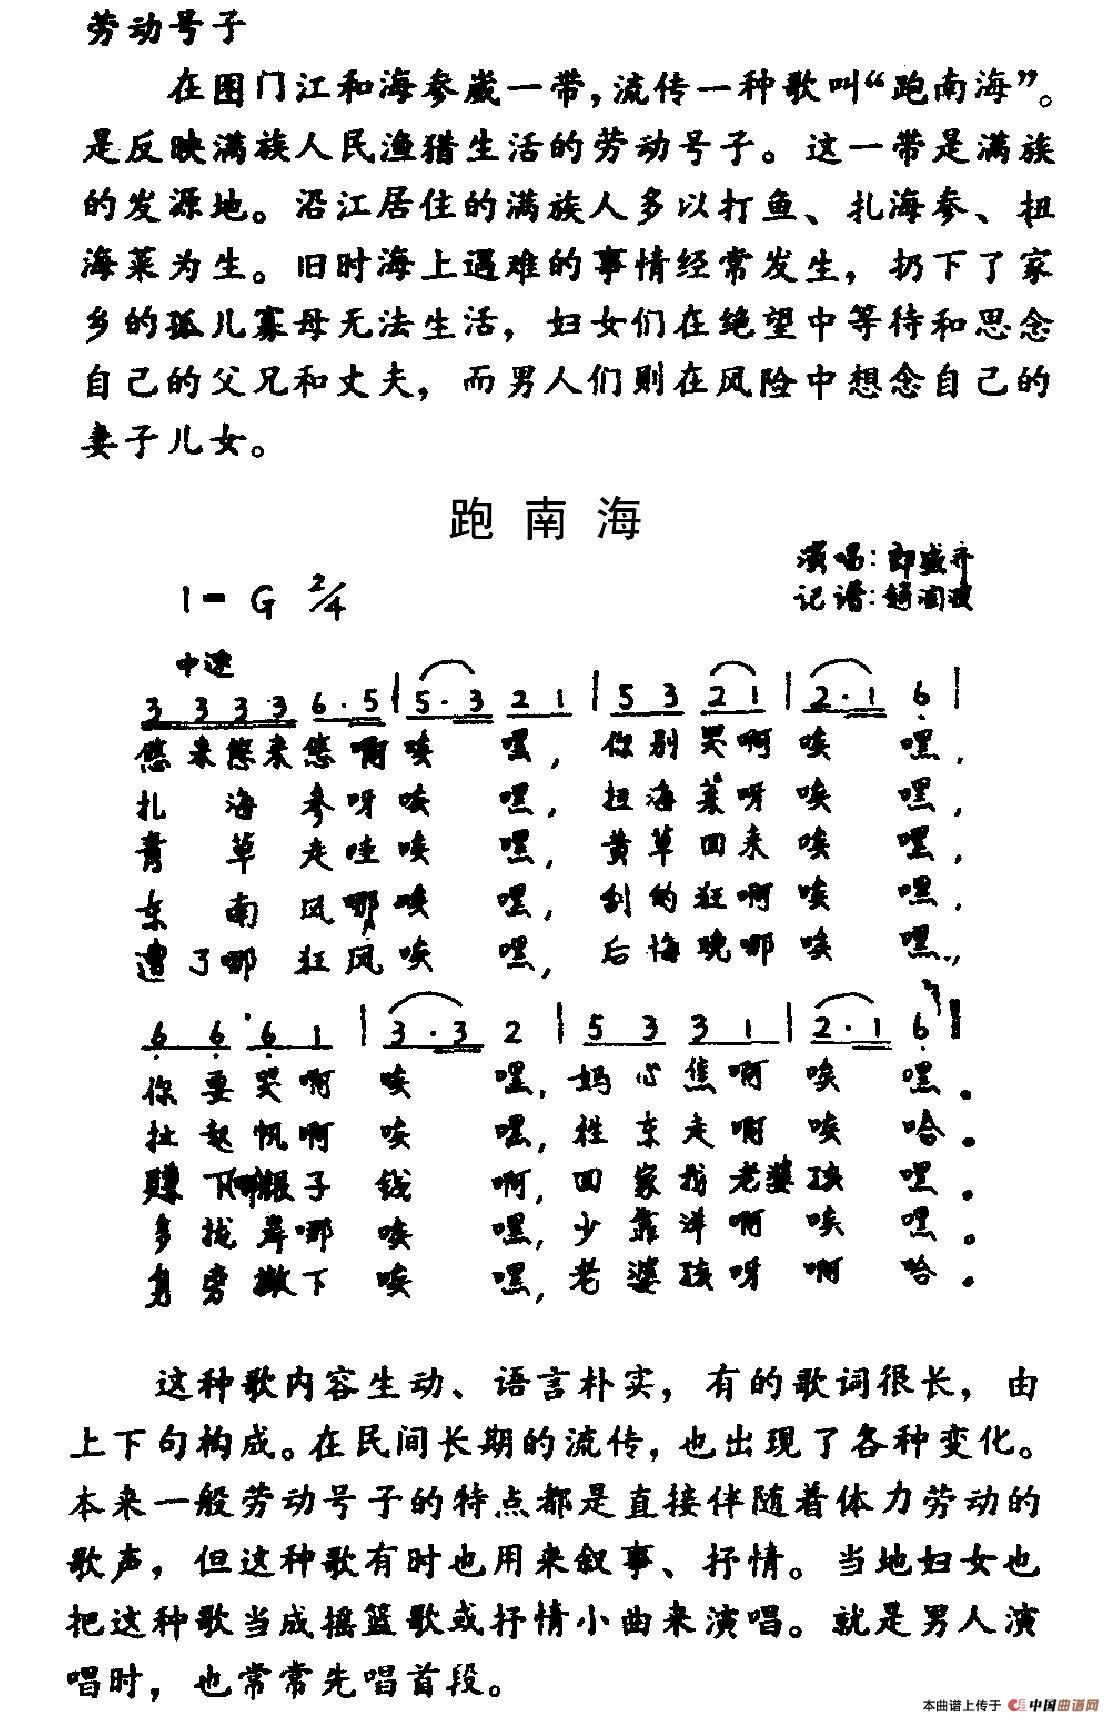 劳动号子
在图门江和海参崴一带，流传一种歌叫“跑南海”。
是反映满族人民渔猎生活的劳动号子。这一带是满族
的发源地。沿江居住的满族人多以打鱼、扎海参、扭
海菜为生。旧时海上遇难的事情经常发生，扔下了家
乡的孤儿寡母无法生活，妇女们在绝望中等待和思念
自己的父兄和丈夫，而男人们则在风险中想念自己的
妻子儿女。
跑南海
演唱：郎盛齐
1= G 2/4
记谱：
中速
3 3 3 3 6 · 5 | 5 · 3 2 1 | 5 3 2 1 | 2 · 1 6 |
悠来悠来悠啊唉 嘿，你别哭啊唉 嘿，
扎 海 参呀唉 嘿，扭海菜呀唉 嘿，
青 草 走哇唉 嘿，黄草回来唉 嘿，
东 南 风哪唉 嘿，刮的狂啊唉 嘿，
遭了哪 狂风唉 嘿，后悔晚哪唉 嘿，
6 6 6 1 | 3 · 3 2 | 5 3 3 1 | 2 · 1 6
你要哭啊 唉 嘿，妈心焦啊 唉 嘿。
扯起帆啊 唉 嘿，往东走啊 唉 哈。
赚下银子 钱 啊，回家找老婆孩 嘿。
多拢 哪 唉 嘿，少靠洋啊 唉 嘿。
身旁撇下 唉 嘿，老婆孩呀 啊 哈。
这种歌内容生动、语言朴实，有的歌词很长，由
上下句构成。在民间长期的流传，也出现了各种变化。
本来一般劳动号子的特点都是直接伴随着体力劳动的
歌声，但这种歌有时也用来叙事、抒情。当地妇女也
把这种歌当成摇篮歌或抒情小曲来演唱。就是男人演
唱时，也常常先唱首段。
本曲谱上传于 中国曲谱网